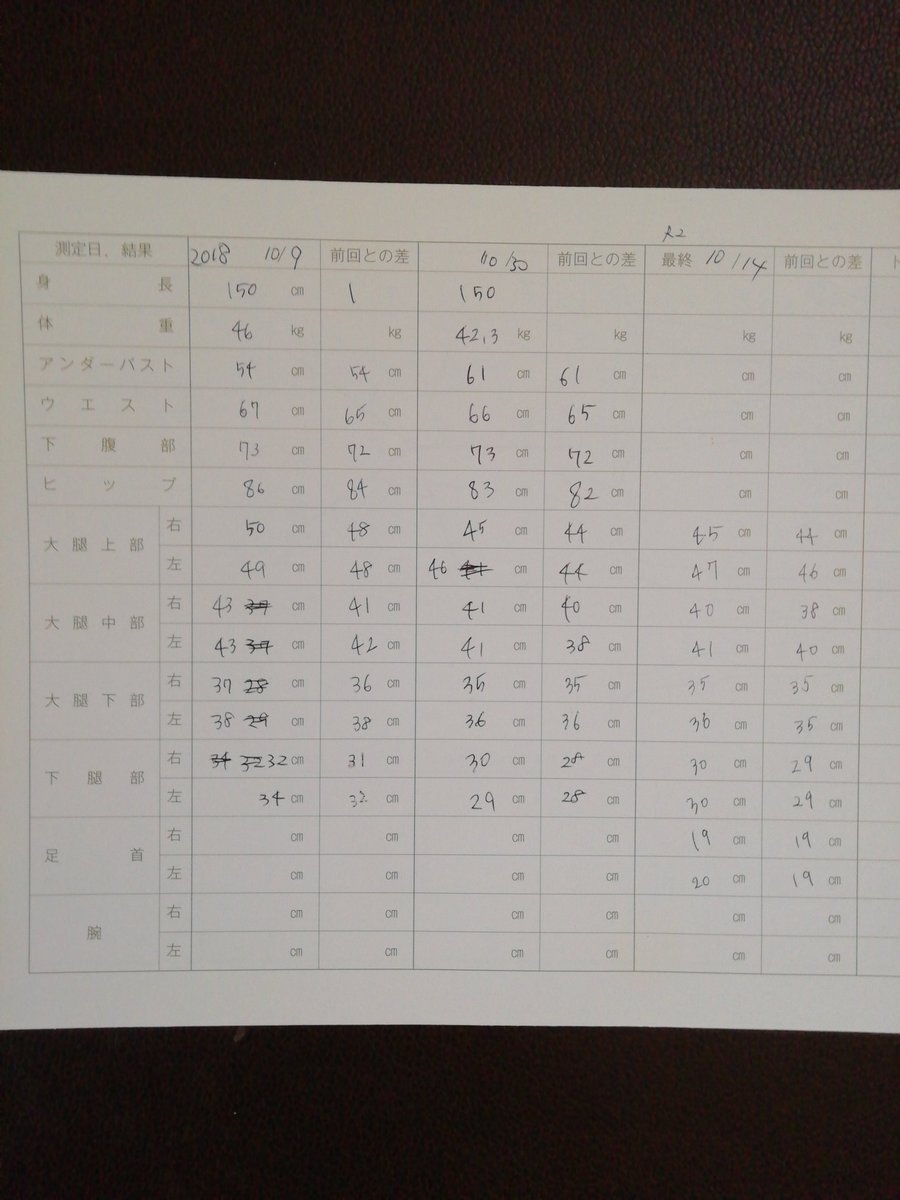 R2
測定日、結果 2018 10/9 前回との差 10/30 前回との差 最終 10/14 前回との差
身長 150 cm 1 150
体重 46 kg kg 42.3 kg kg kg kg
アンダーバスト 54 cm 54 cm 61 cm 61 cm cm cm
ウエスト 67 cm 65 cm 66 cm 65 cm cm cm
下腹部 73 cm 72 cm 73 cm 72 cm cm cm
ヒップ 86 cm 84 cm 83 cm 82 cm cm cm
大腿上部 右 50 cm 48 cm 45 cm 44 cm 45 cm 44 cm
左 49 cm 48 cm 46 cm 44 cm 47 cm 46 cm
大腿中部 右 43 cm 41 cm 41 cm 40 cm 40 cm 38 cm
左 43 cm 42 cm 41 cm 38 cm 41 cm 40 cm
大腿下部 右 37 28 cm 36 cm 35 cm 35 cm 35 cm 35 cm
左 38 29 cm 38 cm 36 cm 36 cm 36 cm 35 cm
下腿部 右 34 32 32 cm 31 cm 30 cm 28 cm 30 cm 29 cm
左 34 cm 32 cm 29 cm 28 cm 30 cm 29 cm
足首 右 cm cm cm cm 19 cm 19 cm
左 cm cm cm cm 20 cm 19 cm
腕 右 cm cm cm cm cm cm
左 cm cm cm cm cm cm